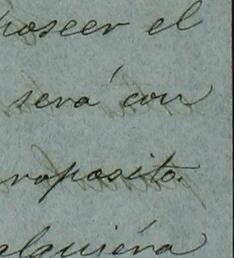 poseer el
será con
proposito.
alquiéra